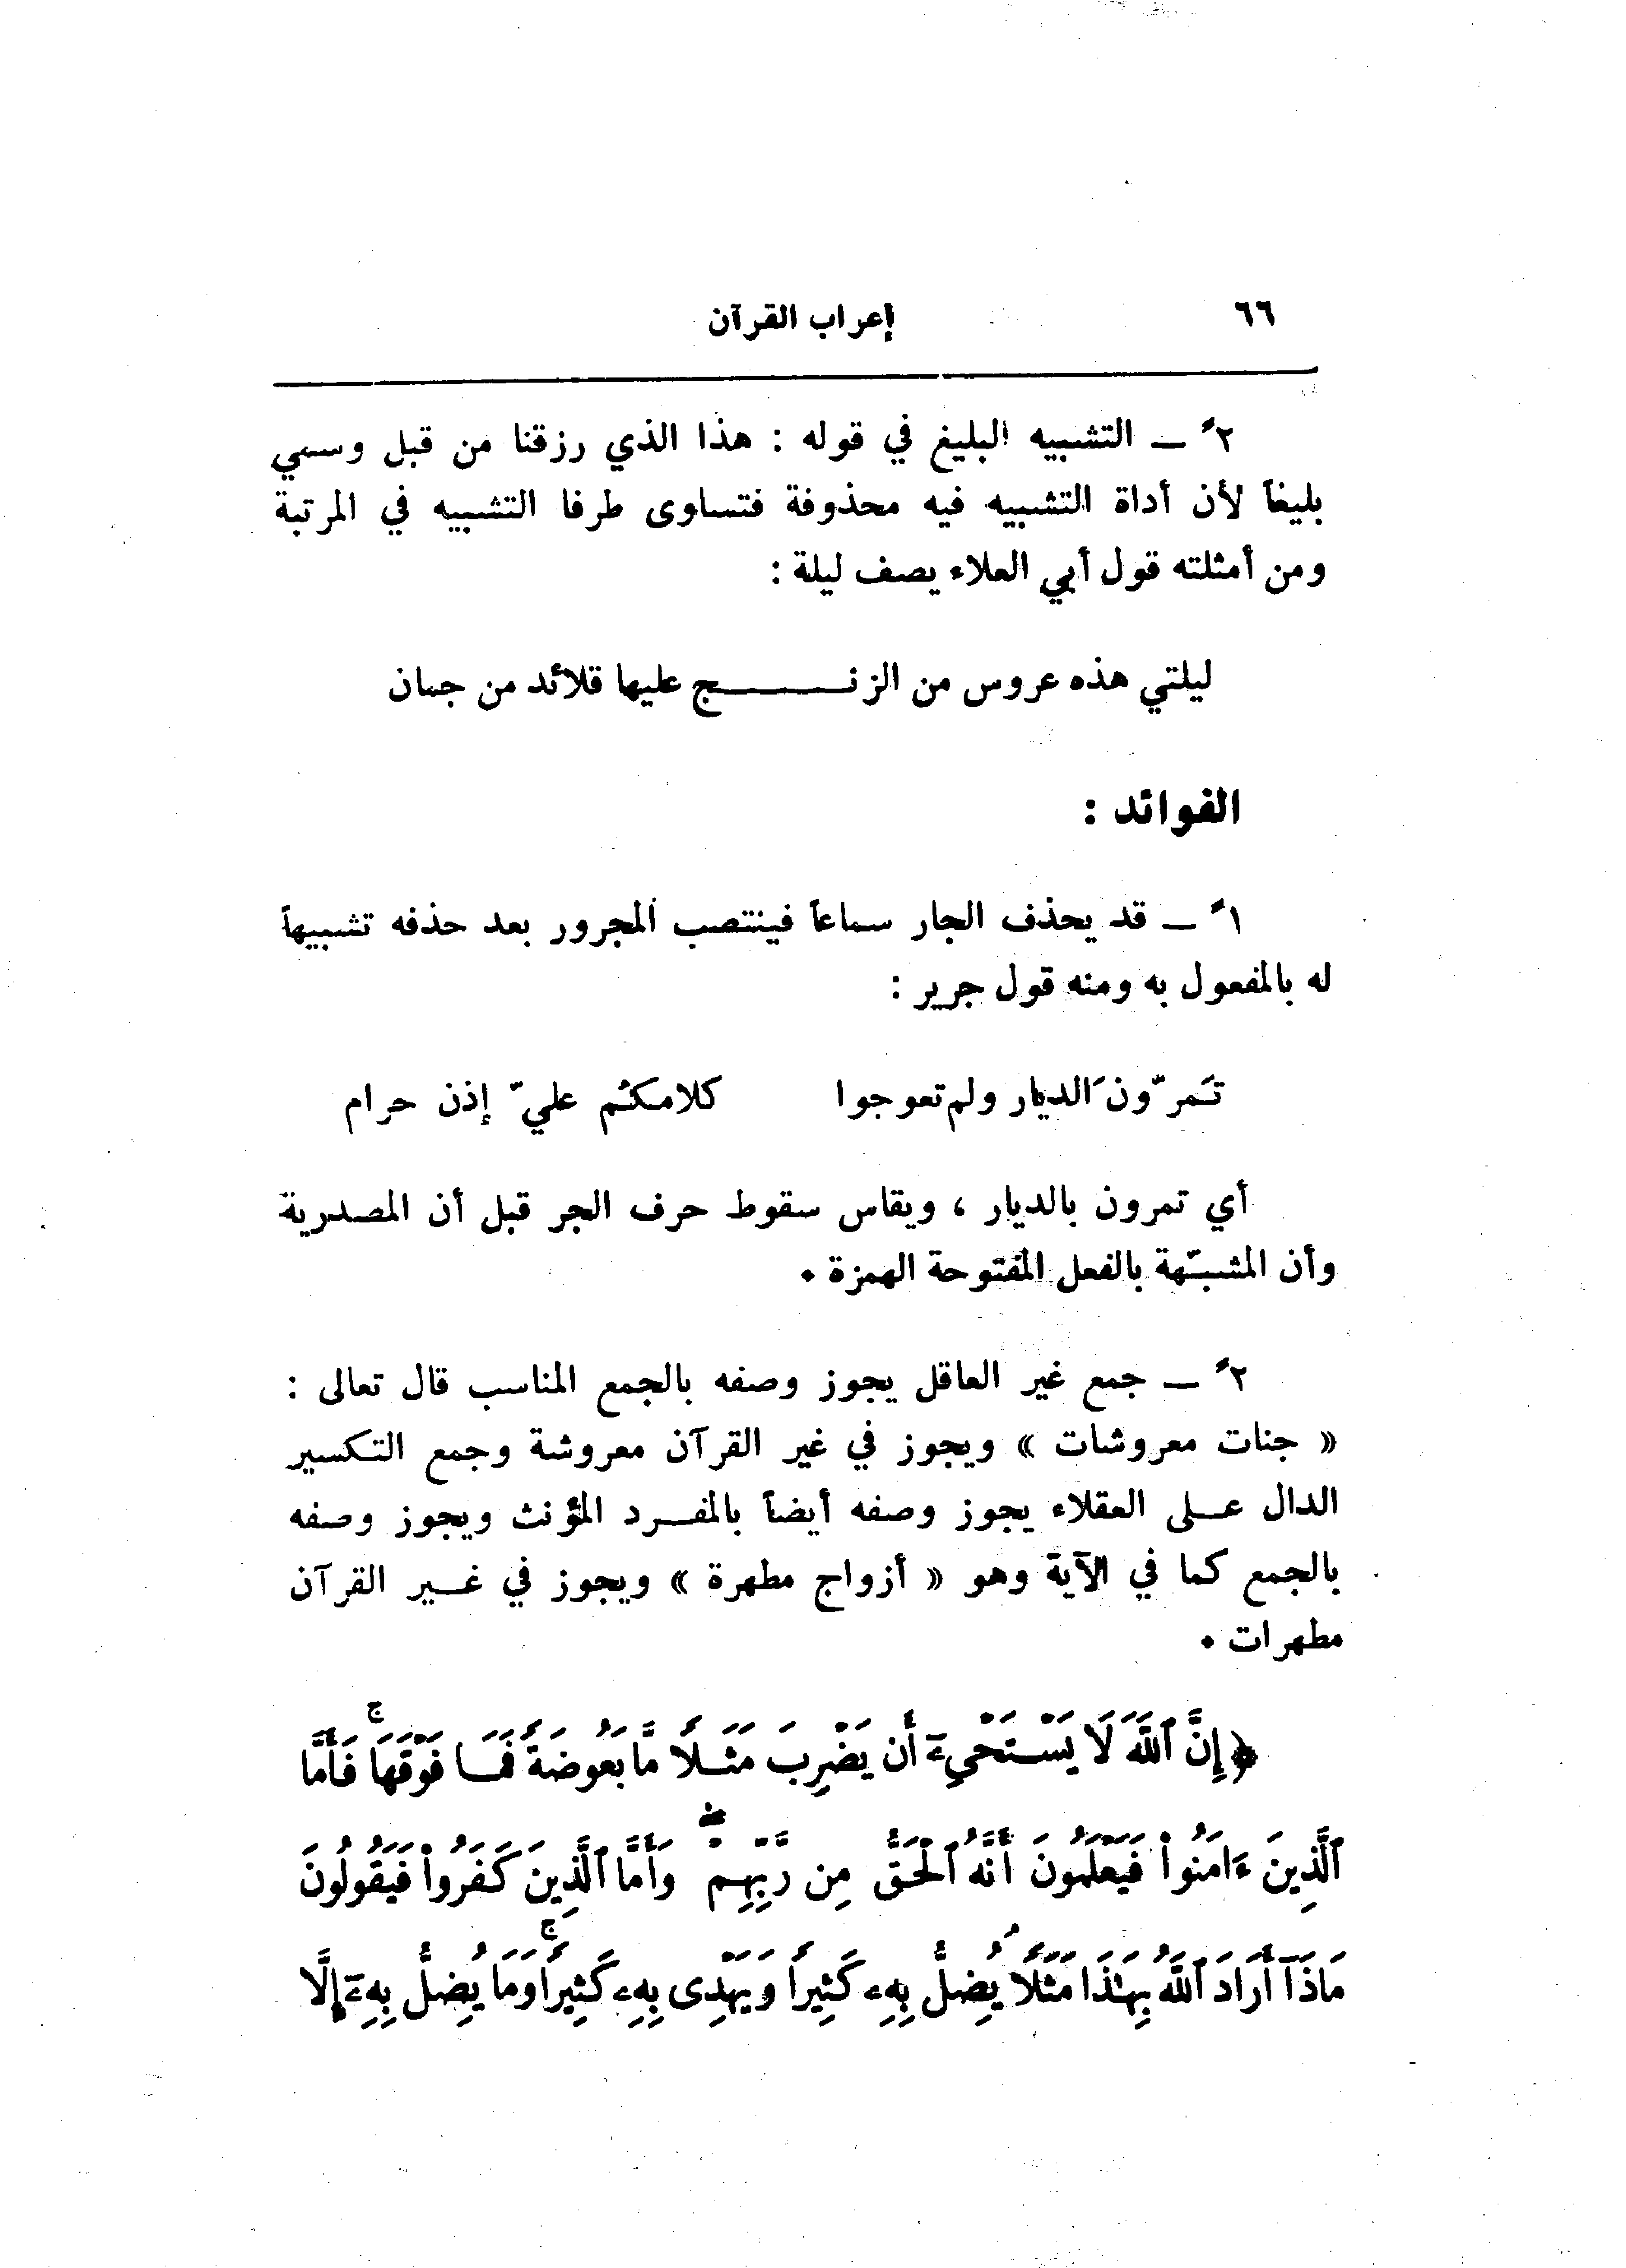 ٦٦ إعراب القرآن
٢ً ــ التشبيه البليغ في قوله : هذا الذي رزقنا من قبل وسمي
بليغاً لأن أداة التشبيه فيه محذوفة فتساوى طرفا التشبيه في المرتبة
ومن أمثلته قول أبي العلاء يصف ليلة :
ليلتي هذه عروس من الزنـــــــج عليها قلائد من جمان
الفوائد :
١ً ــ قد يحذف الجار سماعاً فينتصب المجرور بعد حذفه تشبيهاً
له بالمفعول به ومنه قول جرير :
تَمرّونَ الديار ولم تعوجوا كلامكُم عليّ إذن حرام
أي تمرون بالديار ، ويقاس سقوط حرف الجر قبل أن المصدرية
وأن المشبّهة بالفعل المفتوحة الهمزة .
٢ً ــ جمع غير العاقل يجوز وصفه بالجمع المناسب قال تعالى :
« جنات معروشات » ويجوز في غير القرآن معروشة وجمع التكسير
الدال عـلى العقلاء يجوز وصفه أيضاً بالمفـرد المؤنث ويجوز وصفه
بالجمع كما في الآية وهو « أزواج مطهرة » ويجوز في غـير القرآن
مطهرات .
﴿ إِنَّ ٱللَّهَ لَا يَسْتَحْىِۦٓ أَن يَضْرِبَ مَثَلًا مَّا بَعُوضَةً فَمَا فَوْقَهَاۚ فَأَمَّا
ٱلَّذِينَ ءَامَنُوا۟ فَيَعْلَمُونَ أَنَّهُ ٱلْحَقُّ مِن رَّبِّهِمْۖ وَأَمَّا ٱلَّذِينَ كَفَرُوا۟ فَيَقُولُونَ
مَاذَآ أَرَادَ ٱللَّهُ بِهَٰذَا مَثَلًاۘ يُضِلُّ بِهِۦ كَثِيرًا وَيَهْدِى بِهِۦ كَثِيرًاۚ وَمَا يُضِلُّ بِهِۦٓ إِلَّا